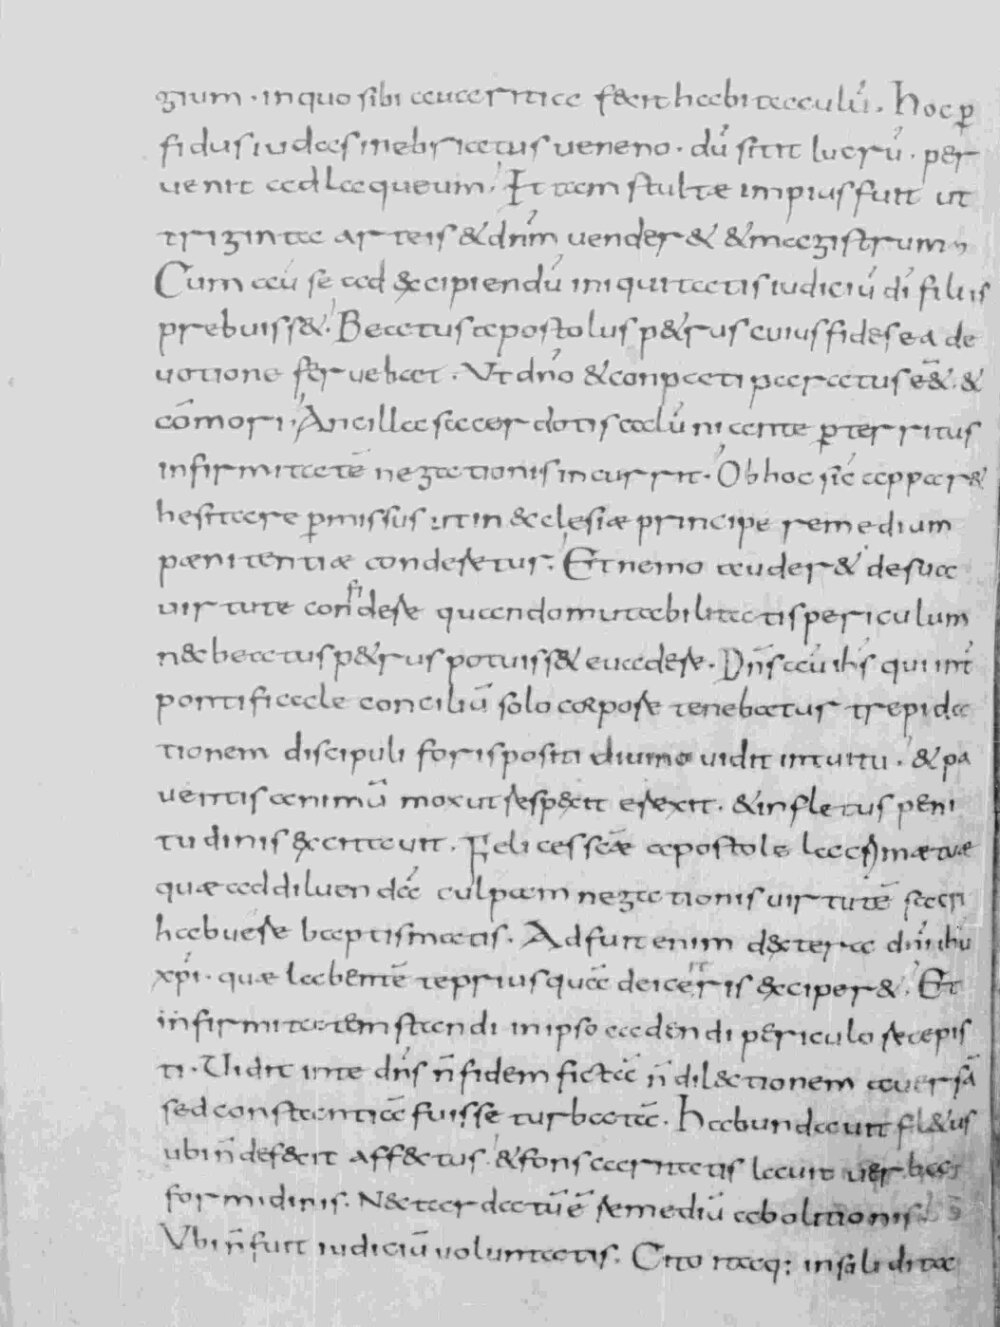 gium · inquo sibi auaritia fecit habitaculū. Hoc ꝑ
fidus iudas inebriatus ueneno · dū sitit lucrū · per
uenit ad laqueum. Et tam stultæ impius fuit ut
triginta arteis & dnm̄ uender& & magistrum,
Cum aū se ad &cipiendū iniquitatis iudiciū dī filiis
prebuiss&. Beatus apostolus p&rus cuius fides ea de
uotione feruebat. Ut dn̄o & conpati paratus eēt & &
cōmori. Ancillæ sacerdotis calūniante ꝑterritus
infirmitatē negationis incurrit. Ob hoc sic̄ appar&
hesitare ꝑmissus ut in &clesiæ principe remedium
pænitentiæ conderetur. Et nemo auder& de sua
uirtute confidere quando mutabilitatis periculum
nec beatus p&rus potuiss& euadere. Dn̄s aū ih̄s qui int̄
pontificale conciliū solo corpore tenebatur trepida
tionem discipuli foris positi diuino uidit intuitu. & pa
uentis animū mox ut resp&it erexit. & in fletus peni
tudinis &citauit. Felices scǣ apostole lacrimæ tuæ
quæ ad diluendā culpam negationis uirtutē sacri
habuere baptismatis. Adfuit enim d&tera dn̄i ih̄u
xp̄i · quæ labentē te priusquā deiceris &ciper&. Et
infirmitatem standi in ipso cadendi periculo recepis
ti. Uidit in te dn̄s n̄ fidem fictā n̄ dil&tionem auersā
sed constantiā fuisse turbatā. Habundauit fl&us
ubi n̄ defecit aff&tus · & fons caritatis lauit uerba
formidinis. Nec tardatū ē remediū abolitionis
Ubi n̄ fuit iudiciū uoluntatis. Cito itaq; in solidita